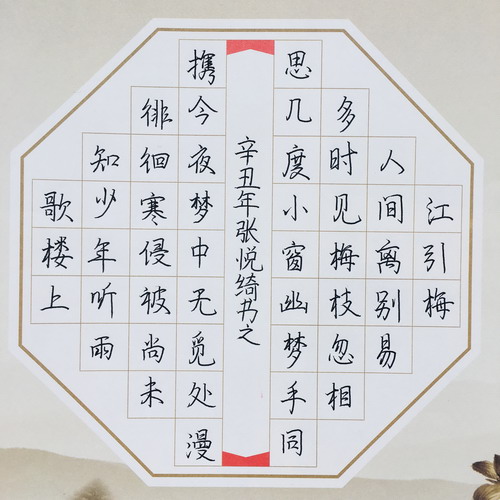 江引梅
人间离别易
多时见梅枝忽相
思几度小窗幽梦手同
辛丑年张悦绮书之
携今夜梦中无觅处漫
徘徊寒侵被尚未
知少年听雨
歌楼上